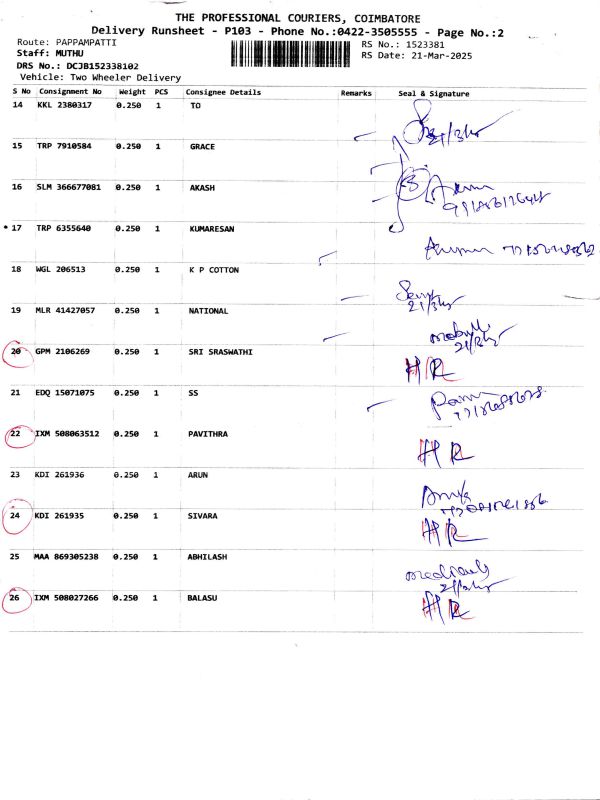 THE PROFESSIONAL COURIERS, COIMBATORE
Delivery Runsheet - P103 - Phone No.:0422-3505555 - Page No.:2
Route: PAPPAMPATTI
Staff: MUTHU
DRS No.: DCJB152338102
Vehicle: Two Wheeler Delivery
RS No.: 1523381
RS Date: 21-Mar-2025
S No Consignment No Weight PCS Consignee Details Remarks Seal & Signature
14 KKL 2380317 0.250 1 TO
21/3/25
15 TRP 7910584 0.250 1 GRACE
16 SLM 366677081 0.250 1 AKASH
* 17 TRP 6355640 0.250 1 KUMARESAN
18 WGL 206513 0.250 1 K P COTTON
19 MLR 41427057 0.250 1 NATIONAL
21/3/25
20 GPM 2106269 0.250 1 SRI SRASWATHI HR
21 EDQ 15071075 0.250 1 SS
22 IXM 508063512 0.250 1 PAVITHRA HR
23 KDI 261936 0.250 1 ARUN
24 KDI 261935 0.250 1 SIVARA HR
25 MAA 869305238 0.250 1 ABHILASH
26 IXM 508027266 0.250 1 BALASU HR